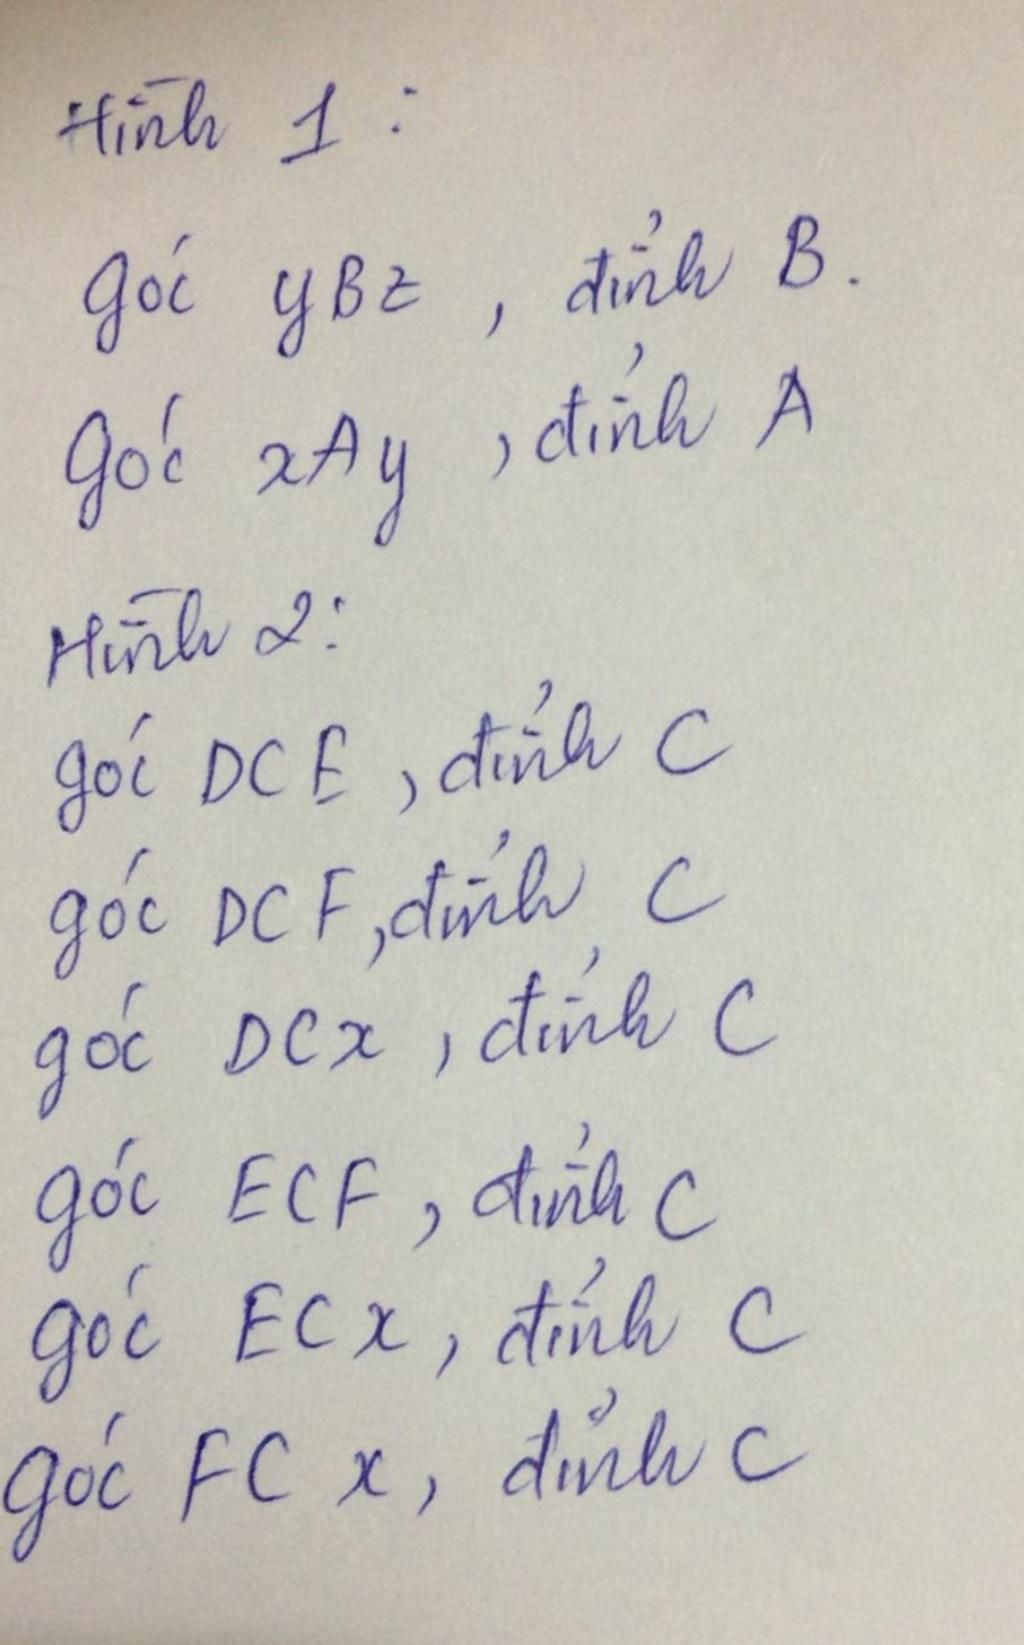 Hình 1 :
góc yBz , đỉnh B.
Góc xAy , đỉnh A
Hình 2 :
góc DCE , đỉnh C
góc DCF , đỉnh C
góc DCx , đỉnh C
góc ECF , đỉnh C
góc ECx , đỉnh C
góc FCx , đỉnh C